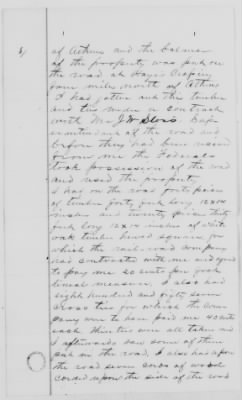 5/
of Athens and the balance
of the property was put on
the road at Hays Crossing
four miles north of Athens
I had gotten out the timber
and ties under a contract
with Mr J. W. Sloss Supe-
rintendent of the road and
before they had been received
from me the Federals
took possession of the road
and used the property.
I had on the road forty pieces
of timber forty feet long 12x14
inches and twenty pieces thirty
feet long 12x14 inches of white
oak timber hewed square for
which the rail road company
had contracted with me and agreed
to pay me 20 cents per foot
lineal measure, I also had
eight hundred and fifty seven
cross ties for which the com
pany were to have paid me 40 cents
each. These ties were all taken and
I afterwards saw some of them
put on the road, I also had upon
the road seven cords of wood
corded upon the side of the road